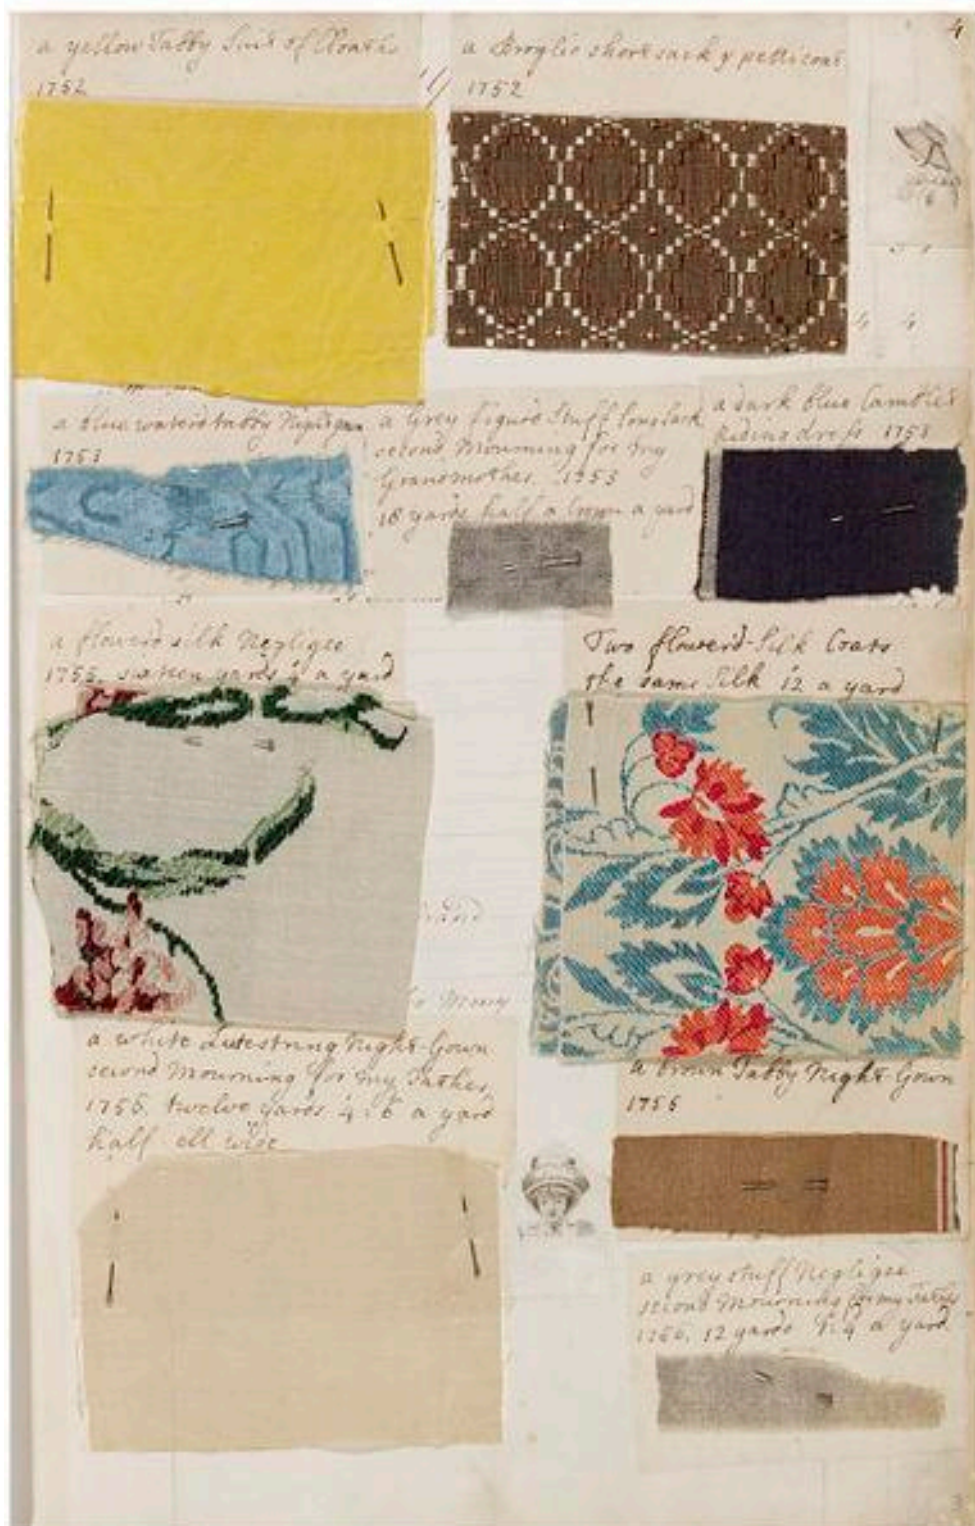 4
a yellow Tabby Suit of Cloaths
1752
a Broglio short sack & petticoat
1752
a blue waterd tabby Nightgown
1753
a Grey figurd Stuff long sack
second Mourning for my
Grandmother. 1753
18 yards half a Crown a yard
a dark blue Camblet
Riding dress 1753
a flowerd silk Negligee
1755. sixteen yards a yard
Two flowerd-Silk Coats
the same Silk 12 a yard
a white Lutestring Night-Gown
second Mourning for my Father,
1756. twelve yards 4:6 a yard
half ell wide
a brown Tabby Night-Gown
1756
a grey stuff Negligee
second Mourning for my Father
1756. 12 yards a yard
3